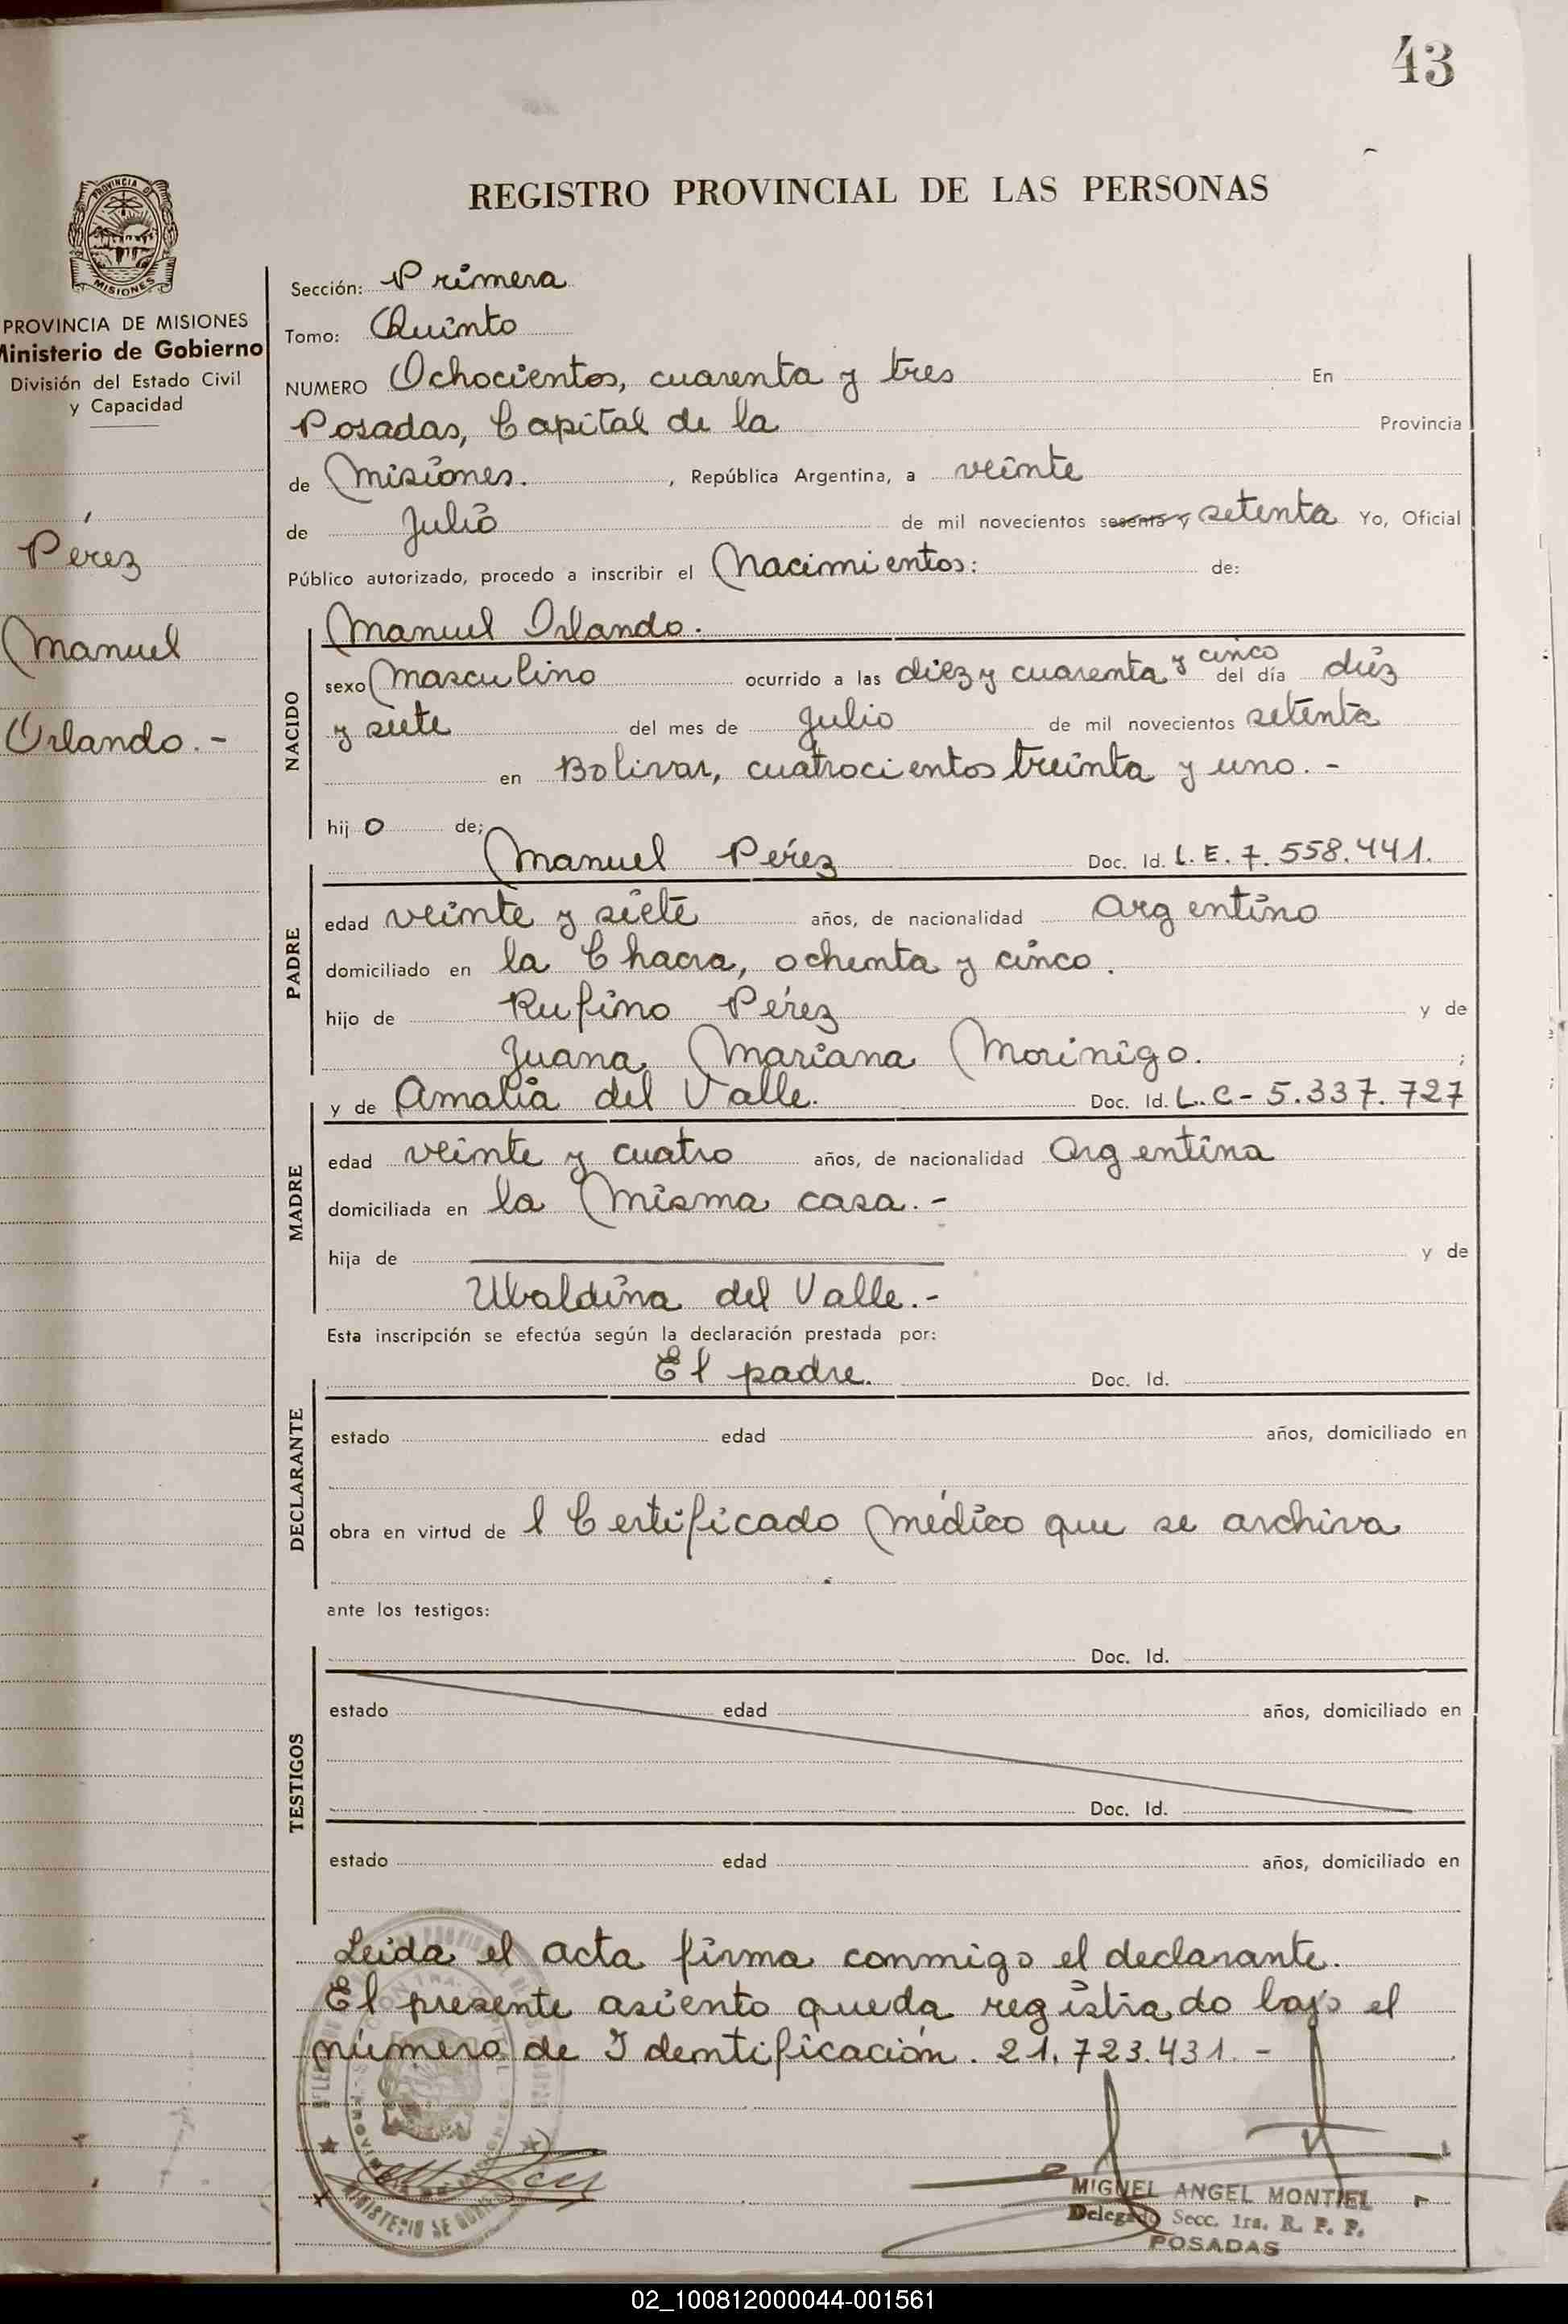 43
REGISTRO PROVINCIAL DE LAS PERSONAS
PROVINCIA DE
MISIONES
PROVINCIA DE MISIONES
Ministerio de Gobierno
División del Estado Civil
y Capacidad
Pérez
Manuel
Orlando.-
Sección: Primera
Tomo: Quinto
NUMERO Ochocientos, cuarenta y tres En
Posadas, Capital de la Provincia
de Misiones. , República Argentina, a veinte
de Julio de mil novecientos sesenta y setenta Yo, Oficial
Público autorizado, procedo a inscribir el Nacimientos: de:
Manuel Orlando.
NACIDO
sexo Masculino ocurrido a las diez y cuarenta y cinco del día diéz
y siete del mes de Julio de mil novecientos setenta
en Bolivar, cuatrocientos treinta y uno.-
hijo de;
Manuel Pérez Doc. Id. L.E. 7.558.441.
PADRE
edad veinte y siete años, de nacionalidad Argentino
domiciliado en la Chacra, ochenta y cinco.
hijo de Rufino Pérez y de
Juana Mariana Morinigo. ;
y de Amalia del Valle. Doc. Id. L.C- 5.337.727
MADRE
edad veinte y cuatro años, de nacionalidad Argentina
domiciliada en la Misma casa.-
hija de y de
Ubaldina del Valle.-
Esta inscripción se efectúa según la declaración prestada por:
El padre. Doc. Id.
DECLARANTE
estado edad años, domiciliado en
obra en virtud de l Certificado Médico que se archiva
ante los testigos:
Doc. Id.
TESTIGOS
estado edad años, domiciliado en
Doc. Id.
estado edad años, domiciliado en
Leida el acta firma conmigo el declarante.
El presente asiento queda registrado bajo el
número de Identificación. 21.723.431.-
MIGUEL ANGEL MONTIEL
Delegado Secc. 1ra. R. P. P.
POSADAS
02_100812000044-001561